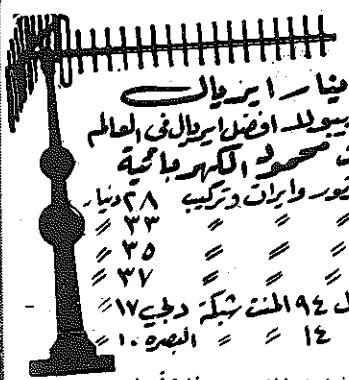 مينار ايريال
بيولد افضل ايريال في العالم
محمود الكهربائية
تور وايران وتركيب ٢٨ دينار
〃 〃 〃 ٣٣ 〃
〃 〃 〃 ٣٥ 〃
〃 〃 〃 ٣٧ 〃
ل ٩٤ المنت شبكة دبي ١٧ 〃
١٤ 〃 〃 البصره ١٠ 〃